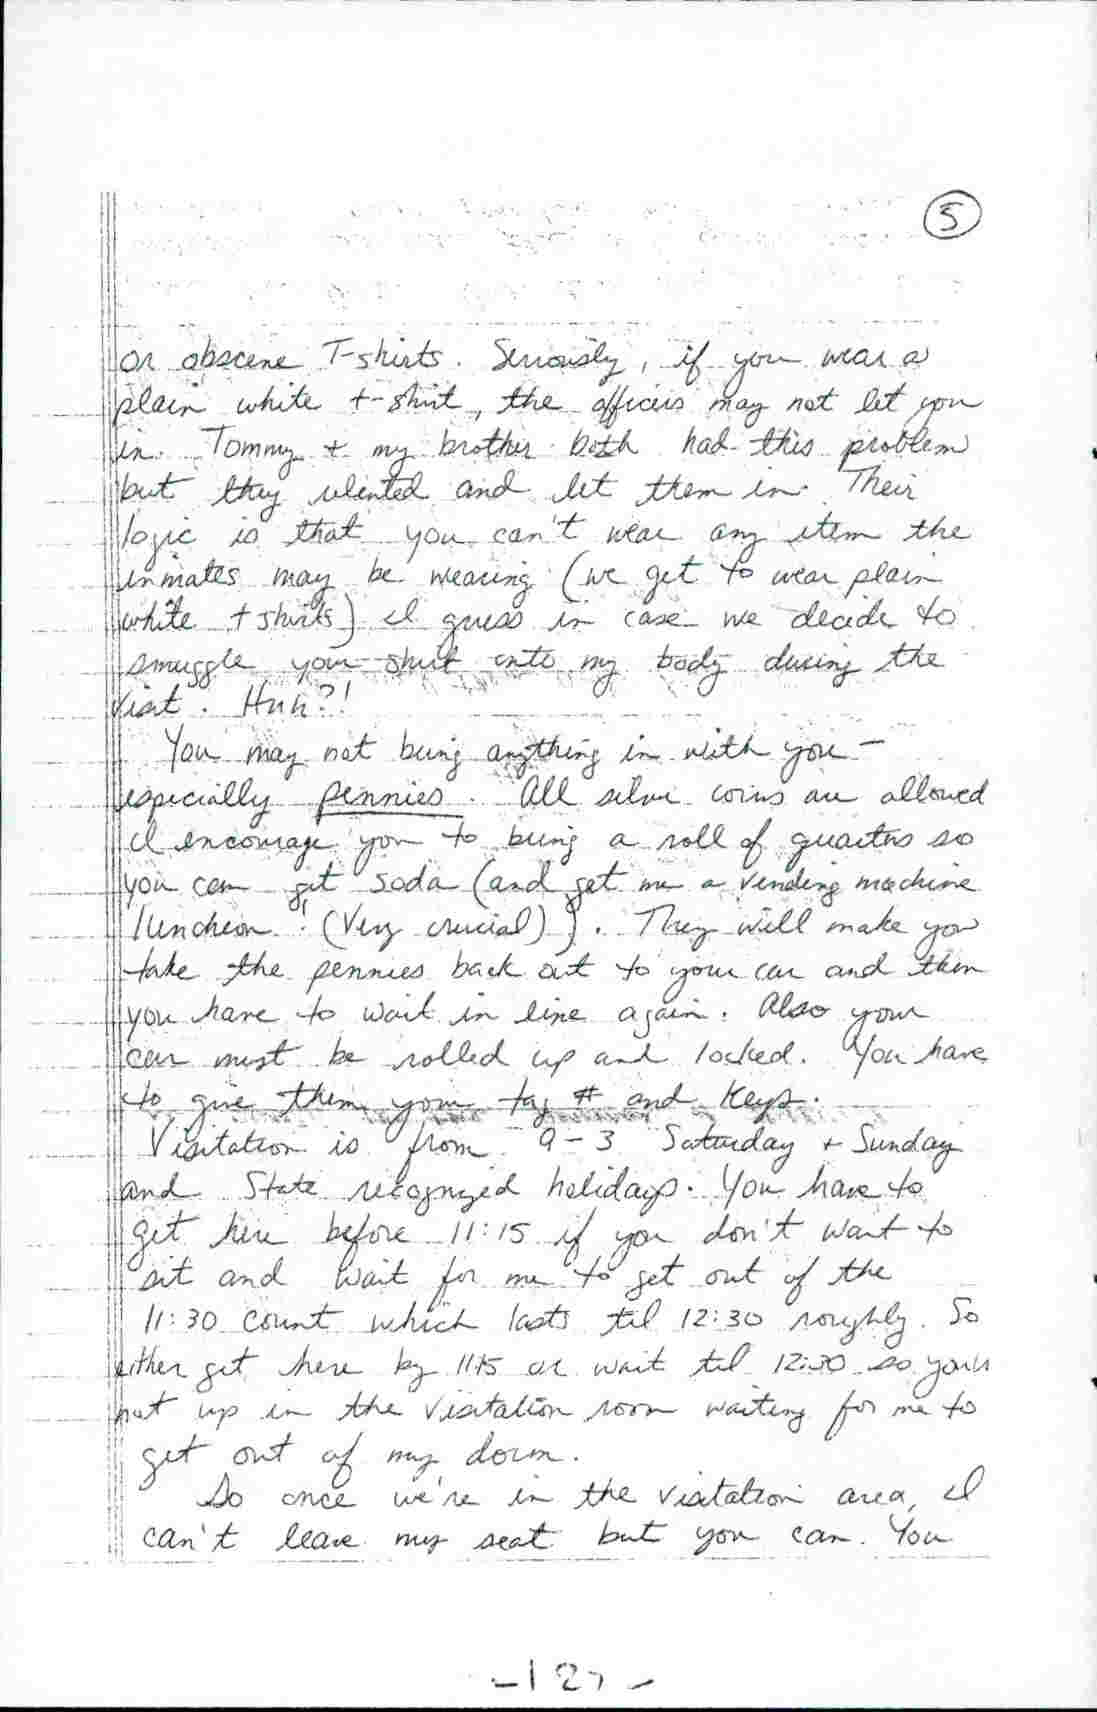 5
or obscene T-shirts. Seriously, if you wear a
plain white t-shirt, the officers may not let you
in. Tommy + my brother both had this problem
but they relented and let them in. Their
logic is that you can't wear any item the
inmates may be wearing (we get to wear plain
white t shirts) I guess in case we decide to
smuggle your shirt onto my body during the
visit. Huh?!
You may not bring anything in with you -
especially pennies. All silver coins are allowed
I encourage you to bring a roll of quarters so
you can get soda (and get me a vending machine
luncheon! (Very crucial)). They will make you
take the pennies back out to your car and then
you have to wait in line again. Also your
car must be rolled up and locked. You have
to give them your tag # and keys.
Visitation is from 9-3 Saturday + Sunday
and State recognized holidays. You have to
get here before 11:15 if you don't want to
sit and wait for me to get out of the
11:30 count which lasts til 12:30 roughly. So
either get here by 1115 or wait til 12:30 so you're
not up in the visitation room waiting for me to
get out of my dorm.
So once we're in the visitation area, I
can't leave my seat but you can. You
-127-